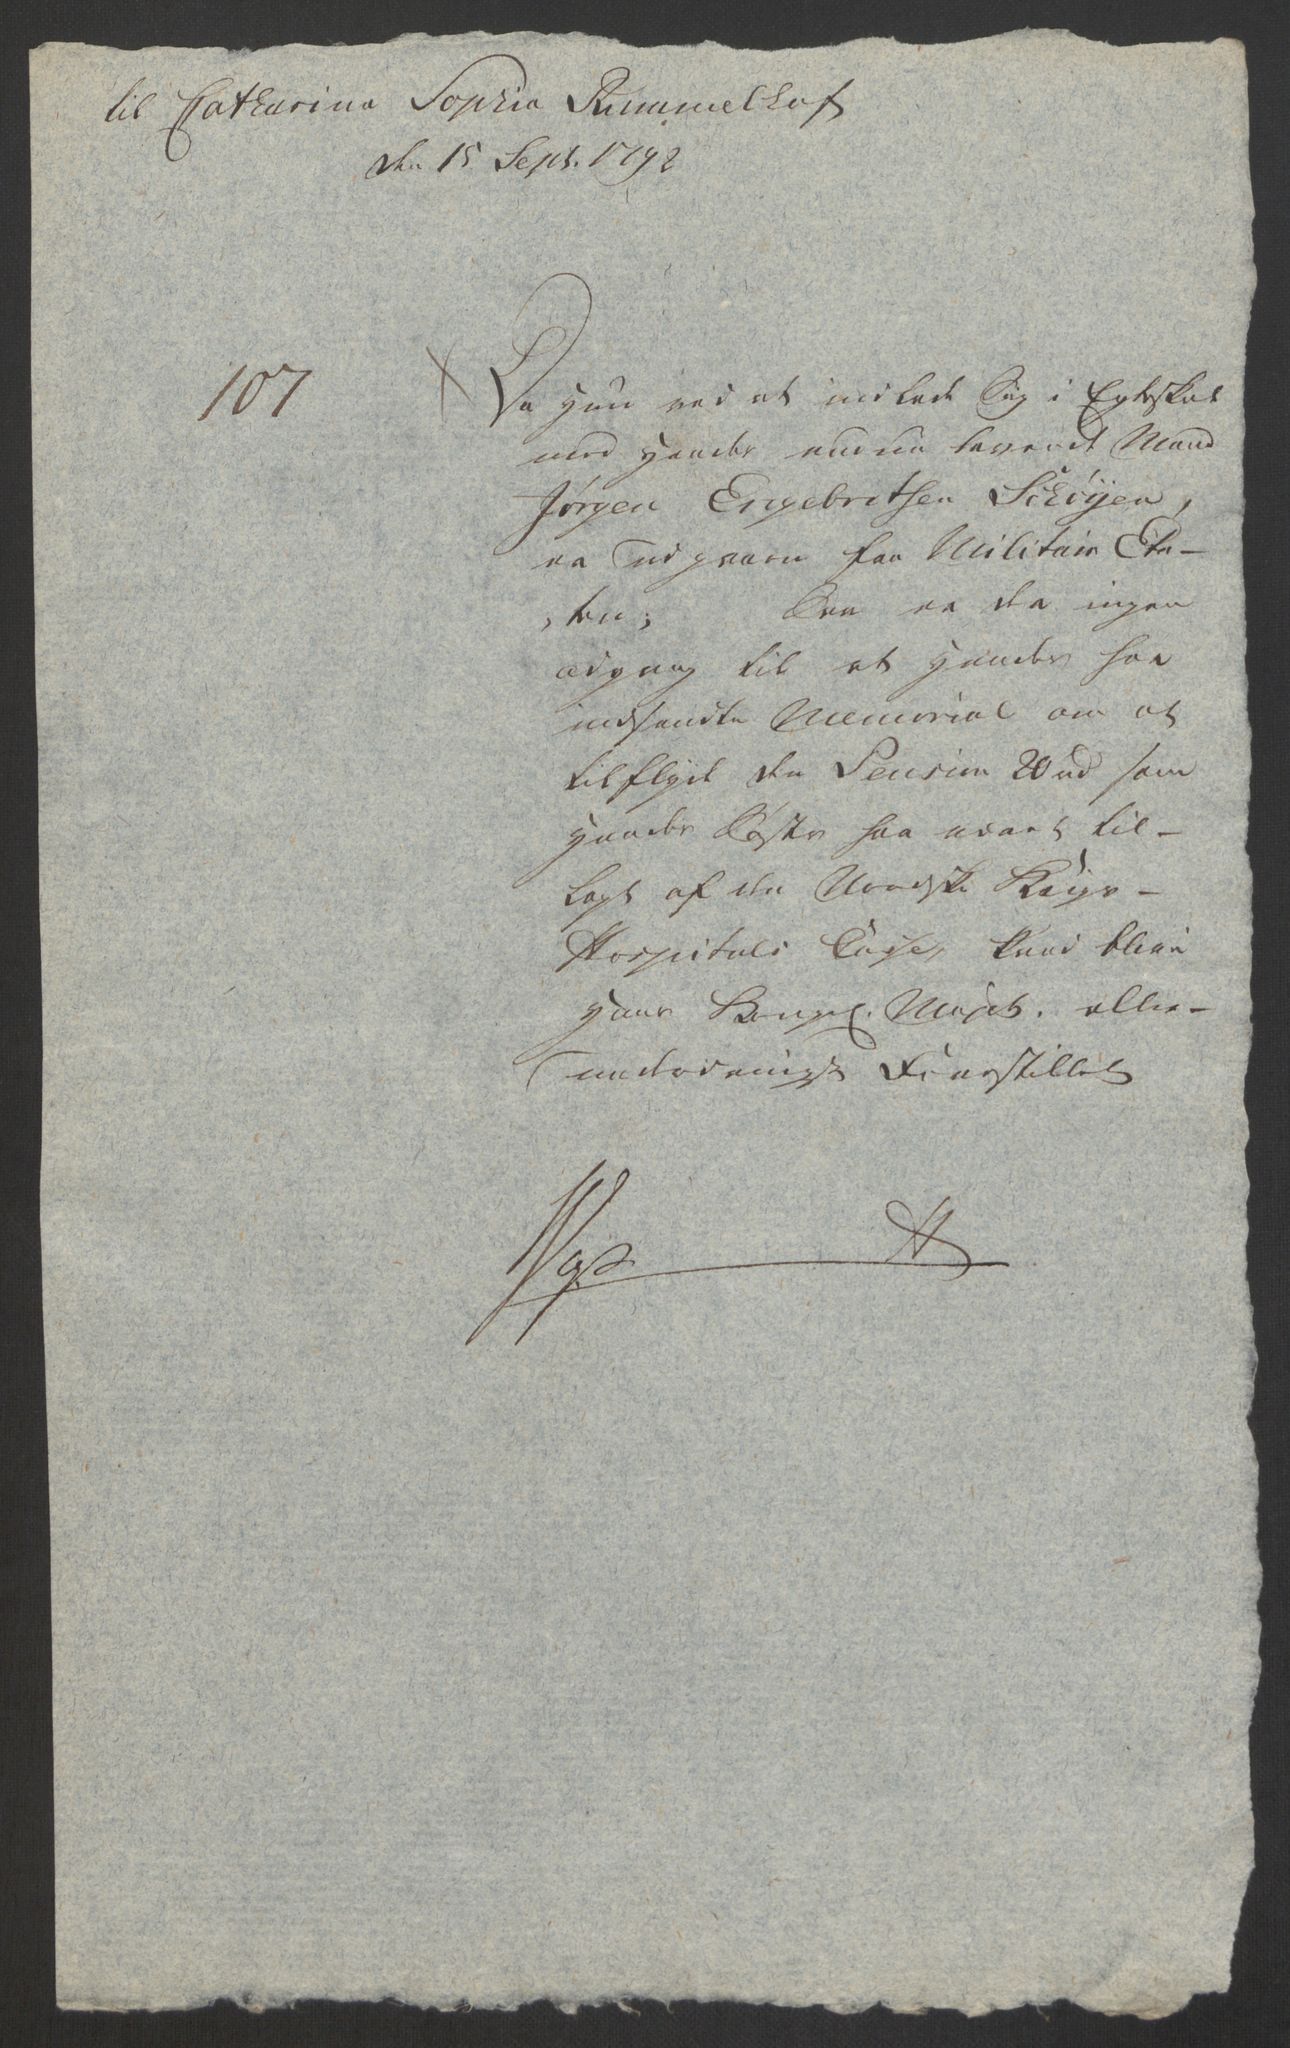 til Catharina Sophia Rummelhof
den 15 Sept. 1792
107
Da hun ved at indlade Sig i Egteskab
med hendes endnu levende Mand
Jørgen Engebretsen Schøyen,
er udgaaen fra Militair Eta-
ten; Saa er der ingen
adgang til at hendes her
indsendte Memorial om at
tilflyde den Pension 20 rd som
hendes Søster har været til-
lagt af den Norske Krigs-
Hospitals Casse, kand blive
Hans Kongel. Mayst. aller-
underdanigst Forestillet